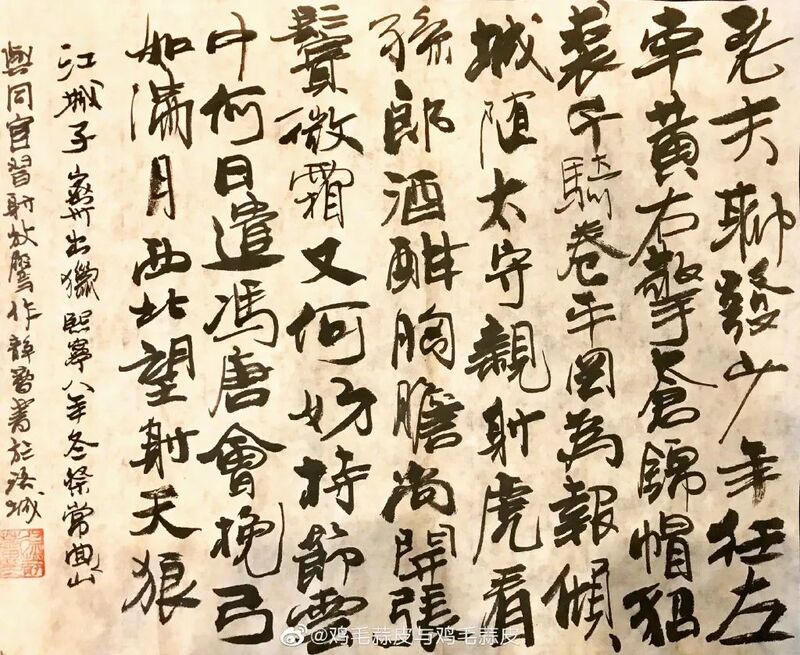 老夫聊發少年狂左
牽黄右擎蒼錦帽貂
裘千騎卷平岡為報傾
城随太守親射虎看
孫郎酒酣胸膽尚開張
鬢微霜又何妨持節雲
中何日遣馮唐會挽弓
如滿月西北望射天狼
江城子密州出獵熙寧八年冬祭常回山
與同官習射放鷹作書於城
@鸡毛蒜皮与鸡毛蒜皮